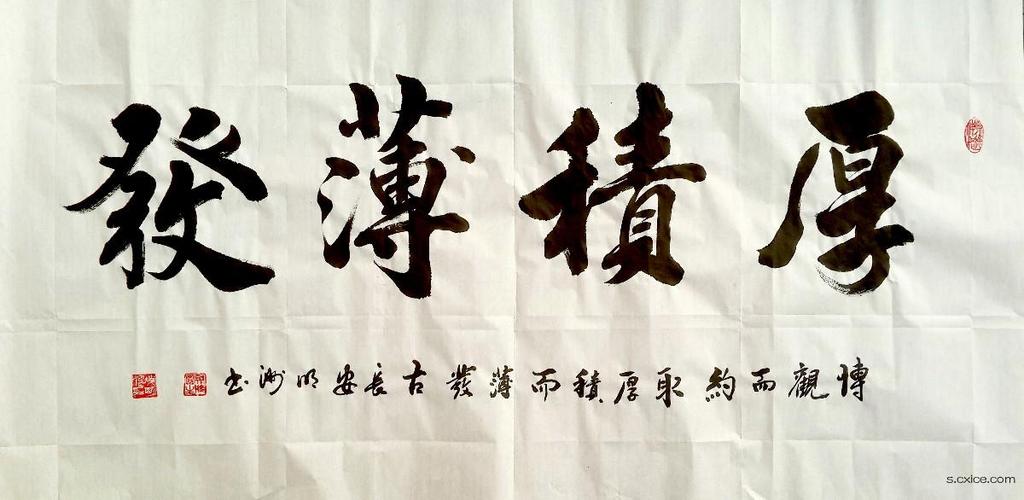 厚積薄發
博觀而約取厚積而薄發古長安明洲书
s.cxice.com